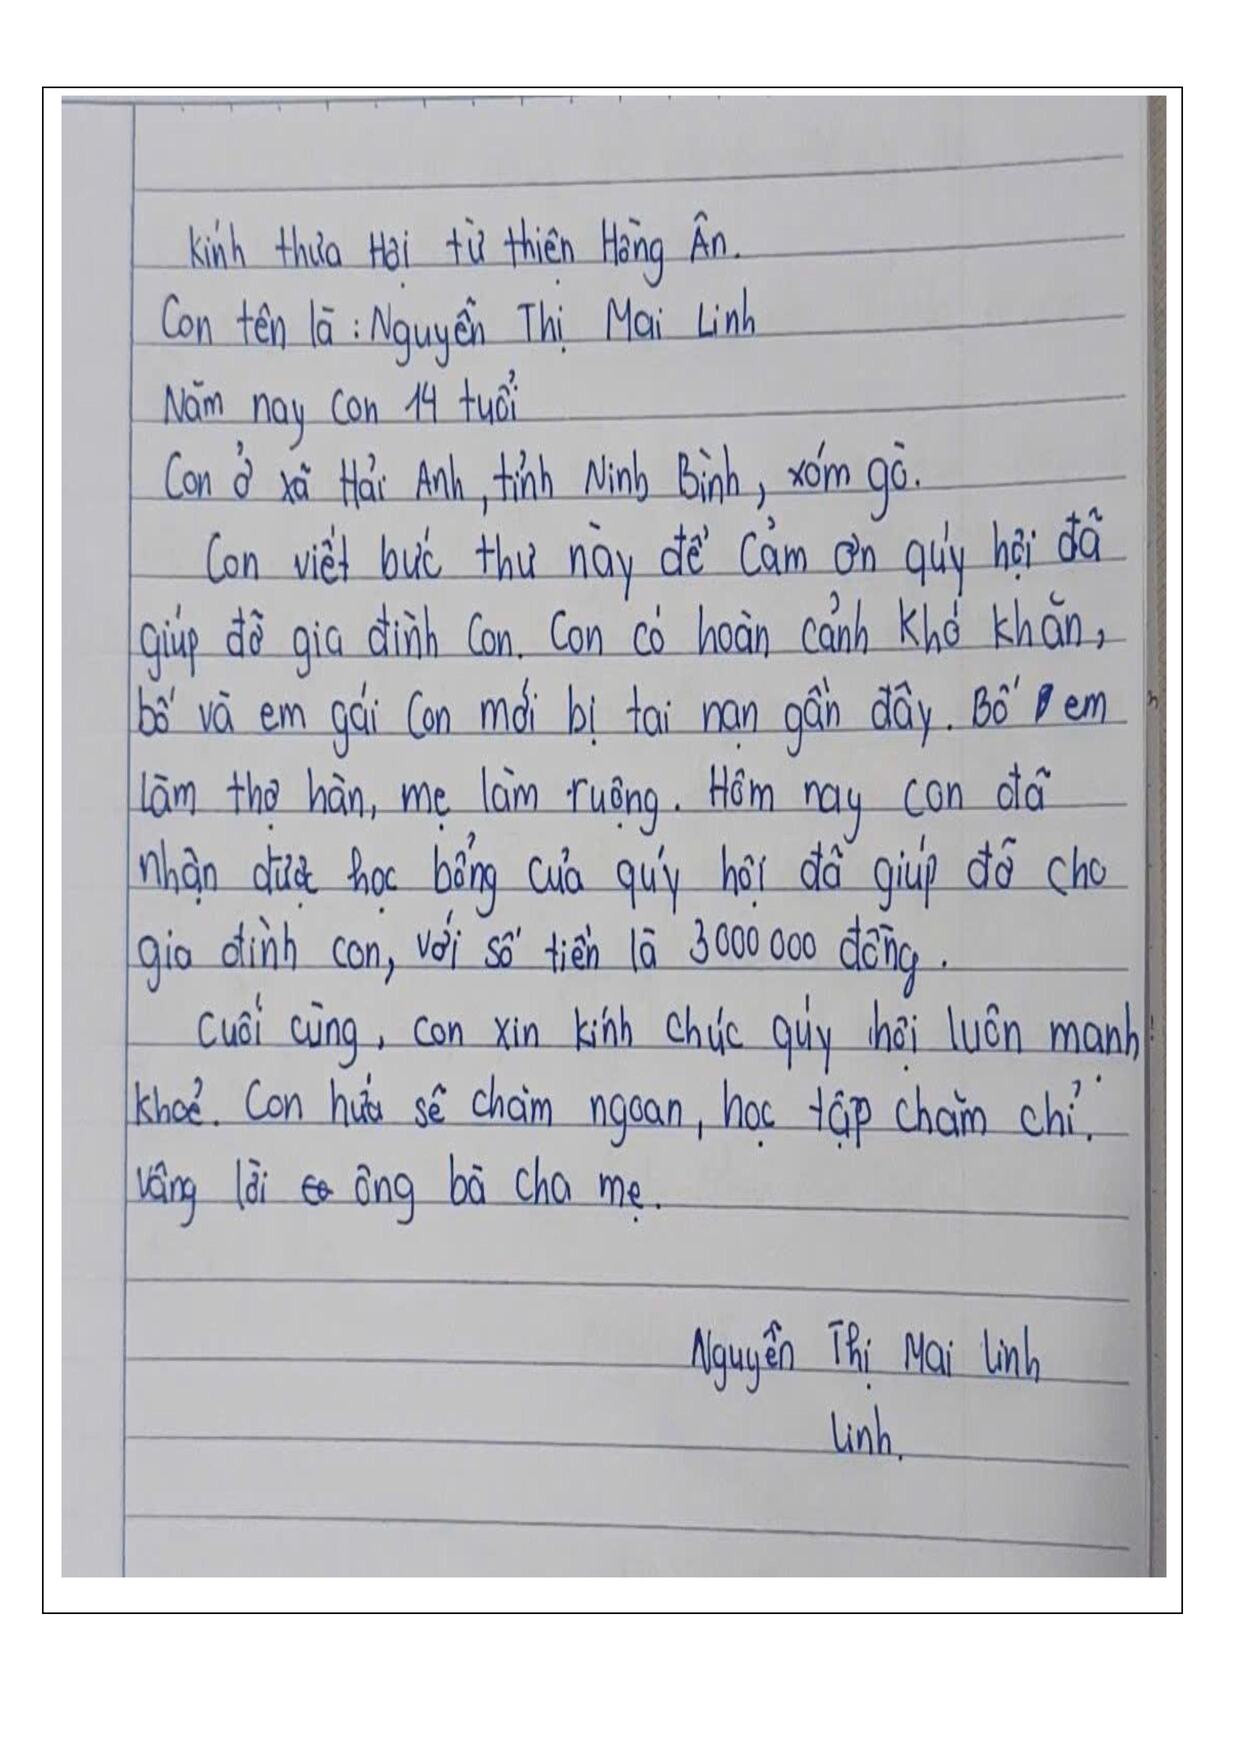 Kính thưa Hội từ thiện Hồng Ân.
Con tên là : Nguyễn Thị Mai Linh
Năm nay con 14 tuổi
Con ở xã Hải Anh, tỉnh Ninh Bình, xóm gò.
Con viết bức thư này để cảm ơn quý hội đã
giúp đỡ gia đình con. Con có hoàn cảnh khó khăn,
bố và em gái con mới bị tai nạn gần đây. Bố em
làm thợ hàn, mẹ làm ruộng. Hôm nay con đã
nhận được học bổng của quý hội đã giúp đỡ cho
gia đình con, với số tiền là 3000 000 đồng.
Cuối cùng, con xin kính chúc quý hội luôn mạnh
khoẻ. Con hứa sẽ chăm ngoan, học tập chăm chỉ.
vâng lời ông bà cha mẹ.
Nguyễn Thị Mai Linh
Linh.